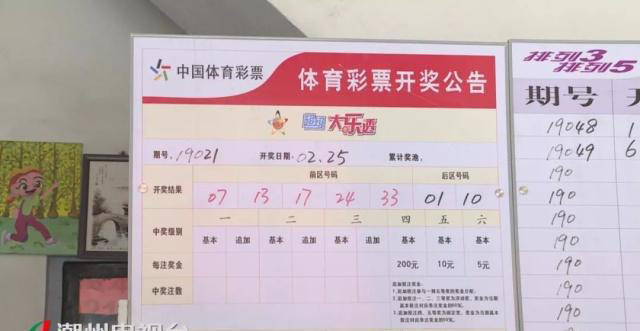 中国体育彩票
体育彩票开奖公告
超级大乐透
期号:19021 开奖日期:02.25 累计奖池:
前区号码 后区号码
开奖结果 07 13 17 24 33 01 10
中奖级别 一 二 三 四 五 六
基本 追加 基本 追加 基本 追加 基本 基本 基本
每注奖金 200元 10元 5元
中奖注数
排列3
排列5
期号 开
19048 1
19049 6
190
190
190
190
190
190
潮州电视台